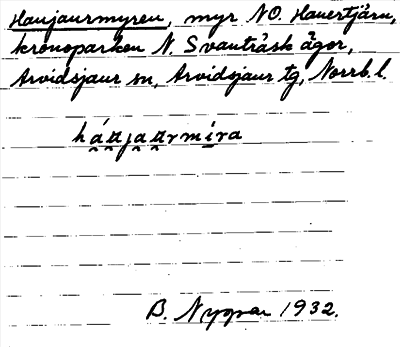 Haujaurmyren, myr NO. Hauertjärn,
kronoparken N. Svanträsk ägor,
Arvidsjaur sn, Arvidsjaur tg, Norrb. l.
B. Nyman 1932.